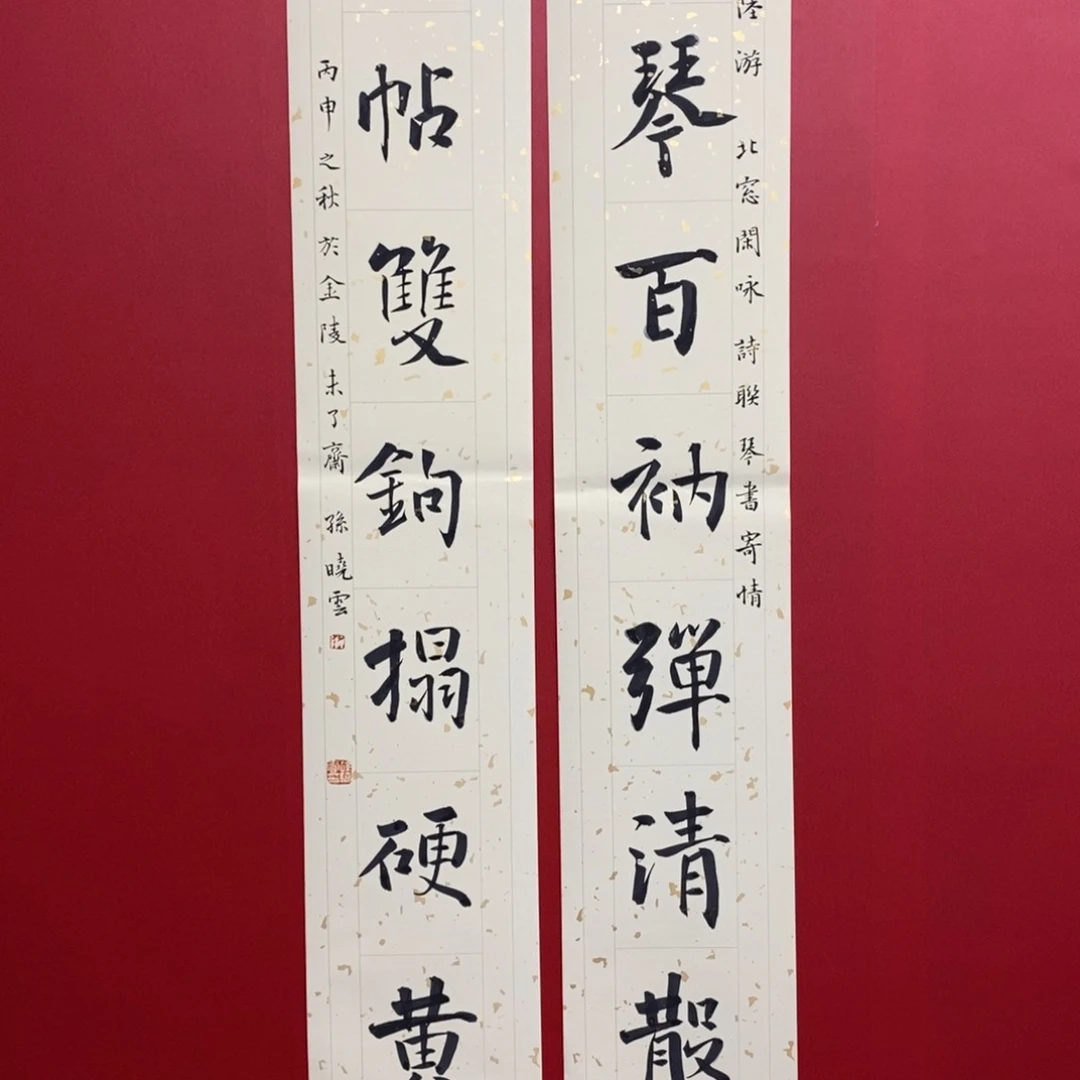 陸游 北窓閑咏 詩聯 琴書寄情
琴百衲彈清散
帖雙鉤搨硬黄
丙申之秋於金陵未了齋 孫曉雲